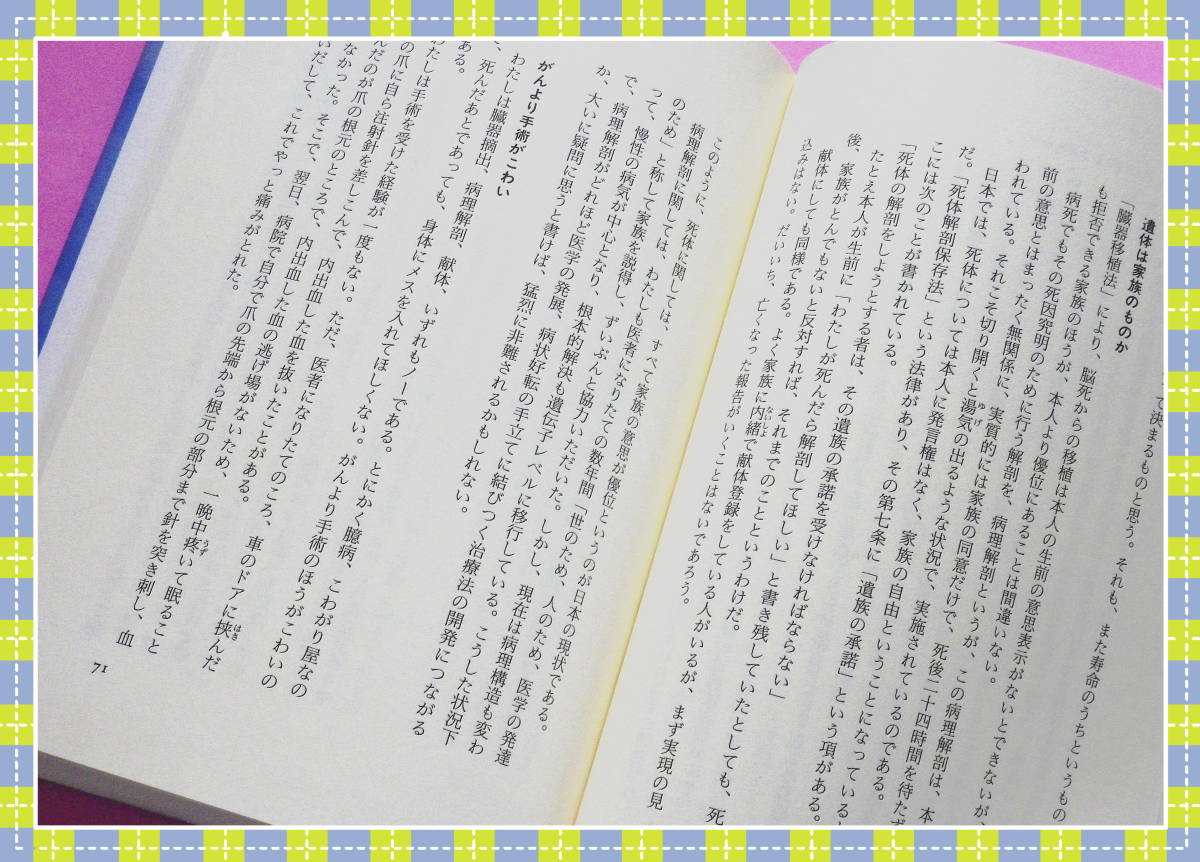 て決まるものと思う。それも、また寿命のうちというもの
遺体は家族のものか
「臓器移植法」により、脳死からの移植は本人の生前の意思表示がないとできないが、
も拒否できる家族のほうが、本人より優位にあることは間違いない。
病死でもその死因究明のために行う解剖を、病理解剖というが、この病理解剖は、本
前の意思とはまったく無関係に、実質的には家族の同意だけで、死後二十四時間を待たず
われている。それこそ切り開くと湯気の出るような状況で、実施されているのである。
日本では、死体については本人に発言権はなく、家族の自由ということになっている
だ。「死体解剖保存法」という法律があり、その第七条に「遺族の承諾」という項がある。
こには次のことが書かれている。
「死体の解剖をしようとする者は、その遺族の承諾を受けなければならない」
たとえ本人が生前に「わたしが死んだら解剖してほしい」と書き残していたとしても、死
後、家族がとんでもないと反対すれば、それまでのことというわけだ。
献体にしても同様である。よく家族に内緒で献体登録をしている人がいるが、まず実現の見
込みはない。だいいち、亡くなった報告がいくことはないであろう。
このように、死体に関しては、すべて家族の意思が優位というのが日本の現状である。
病理解剖に関しては、わたしも医者になりたての数年間「世のため、人のため、医学の発達
のため」と称して家族を説得し、ずいぶんと協力いただいた。しかし、現在は病理構造も変わ
って、慢性の病気が中心となり、根本的解決も遺伝子レベルに移行している。こうした状況下
で、病理解剖がどれほど医学の発展、病状好転の手立てに結びつく治療法の開発につながる
か、大いに疑問に思うと書けば、猛烈に非難されるかもしれない。
がんより手術がこわい
わたしは臓器摘出、病理解剖、献体、いずれもノーである。とにかく臆病、こわがり屋なの
、死んだあとであっても、身体にメスを入れてほしくない。がんより手術のほうがこわいの
ある。
わたしは手術を受けた経験が一度もない。ただ、医者になりたてのころ、車のドアに挟んだ
の爪に自ら注射針を差しこんで、内出血した血を抜いたことがある。
んだのが爪の根元のところで、内出血した血の逃げ場がないため、一晩中疼いて眠ること
なかった。そこで、翌日、病院で自分で爪の先端から根元の部分まで針を突き刺し、血
いだして、これでやっと痛みがとれた。
71